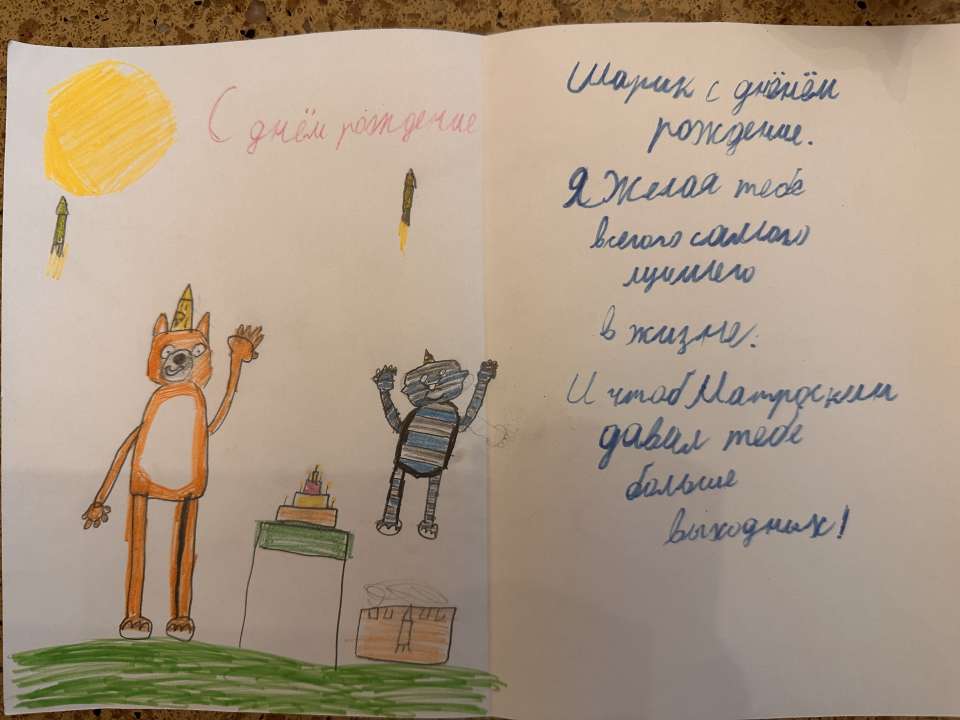 С днём рождение
Шарик с днёнём
рождение.
Я Желая тебе
всегого самого
лучшего
в жизне.
И чтоб Матроскин
давал тебе
больше
выходных!